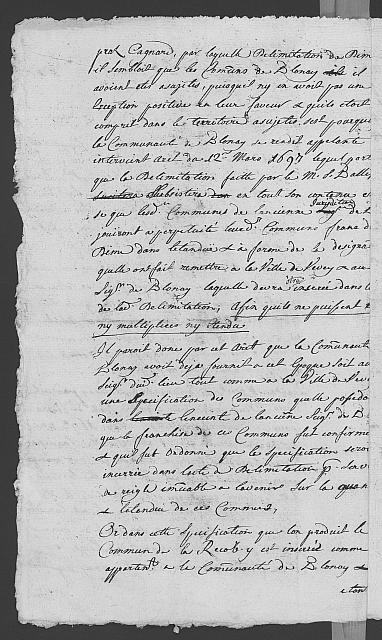 prox Cagnard, par laquelle Delimitation de Dime
il sembloit que les Comuns de Blonay
avoient etes asujetis, puisquil ny en avoit pas une
Exception positive en leur faveur & quils etoit
compris dans le territoire asujetis, cest pourquoi
la Comunauté de Blonay se rendit appelante
intervient arêt du 12e Mars 1697 lequel port
que la Delimitation faite par le M. S. Bailly
Subsistera en tout son contenu &
se que lesd. Communs de lancienne Jurisdiction de B
jouiront a perpetuité leurd. Communs franc de
Dime dans letendüe & a forme de la designa
quelle ont fait remettre a la Ville de Vevey & au
Sigr. de Blonay laquelle devra être inserée dans l
de lad. Delimitation, Afin quils ne puissent
ny multipliees ny etendu
Il paroit donc par cet Arêt que la Comunauté
Blonay avoit deja fournit a cet Epoque soit au
Seigr. dud. lieu tout comme a la Ville de Vev
une Specification des Communs quelle posedo
dans lenceinte de lanciene Seigr. de B
que la franchise de ces Communs fut confirmé
& qui fut ordonné que les Specifications seroi
inserrée dans lacte de Delimitation p. Serv
de reigle imuable a lavenir Sur la quan
& letendue de ces Communs,
Or dans cette Specification que lon produit le
Commun de la Recob y est inserée comme
appartent. a la Comunauté de Blonay &
& ton